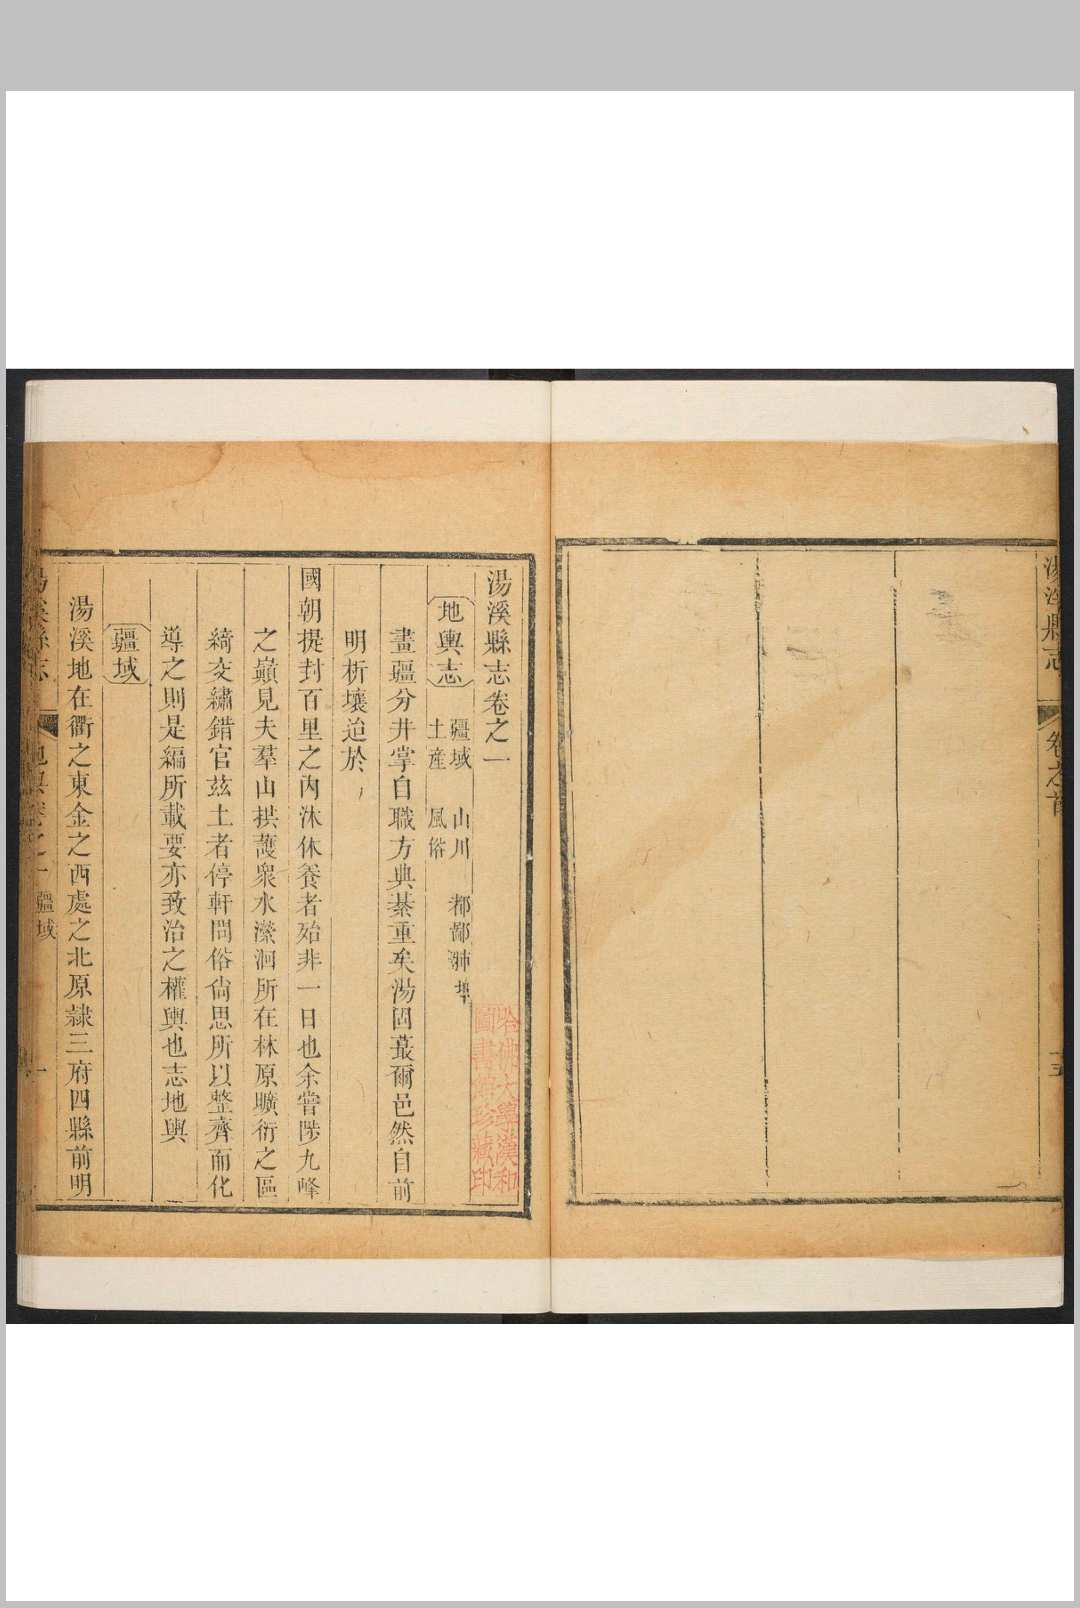 湯溪縣志
卷之首
十五
湯溪縣志卷之一
地輿志
疆域 山川 都鄙
土產 風俗
畫疆分井掌自職方典綦重矣湯固蕞爾邑然自前
明析壤迨於
國朝提封百里之內沐休養者殆非一日也余嘗陟九峰
之巔見夫羣山拱護衆水瀠洄所在林原曠衍之區
綺交繡錯官茲土者停軒問俗尙思所以整齊而化
導之則是編所載要亦致治之權輿也志地輿
疆域
湯溪地在衢之東金之西處之北原隷三府四縣前明
湯溪縣志
地輿卷之一 疆域
一
哈佛大學漢和
圖書館珍藏印